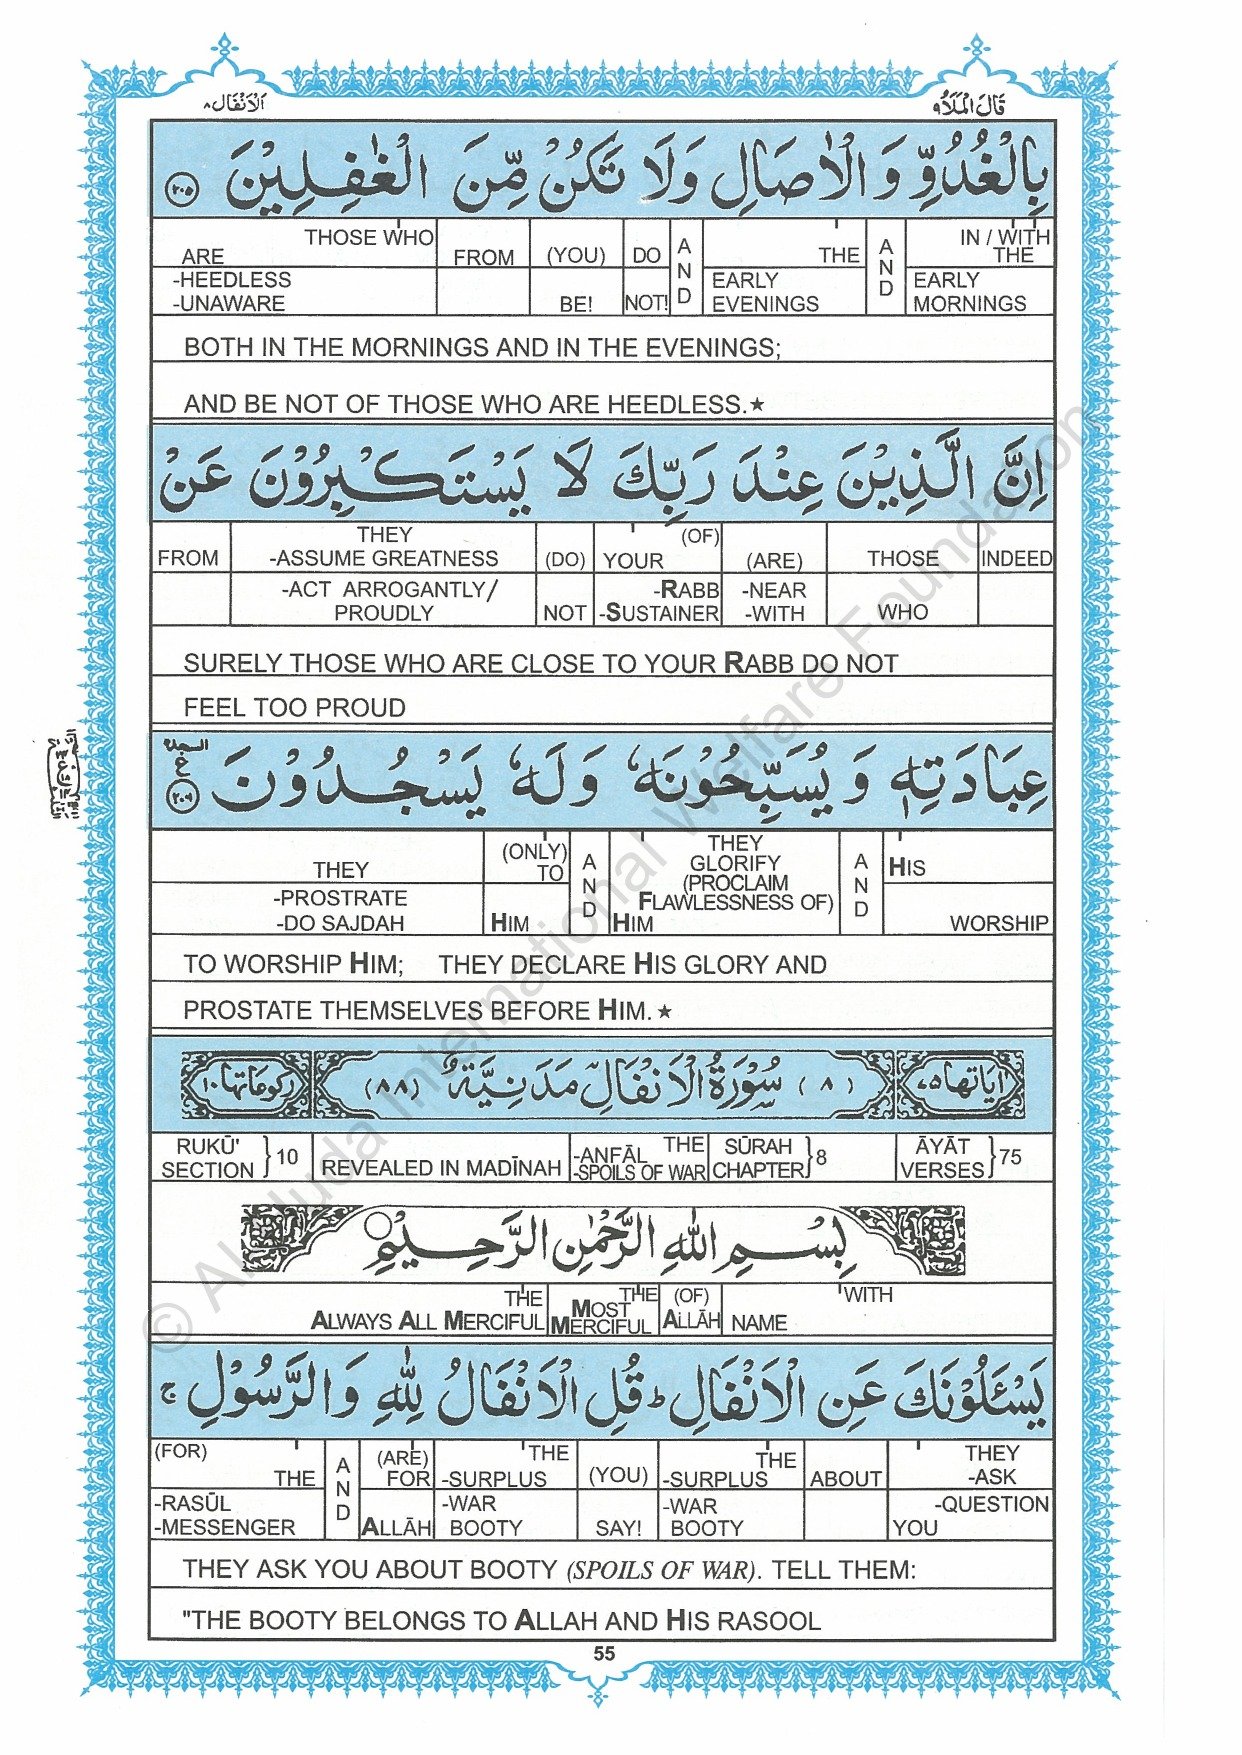 الانفال ٨ قال الملا ٩
بِالْغُدُوِّ وَالْاٰصَالِ وَلَا تَكُنْ مِّنَ الْغٰفِلِيْنَ ﴿٢٠٥﴾
THOSE WHO ARE -HEEDLESS -UNAWARE | FROM | (YOU) BE! | DO NOT! | AND | THE EARLY EVENINGS | AND | IN / WITH THE EARLY MORNINGS
BOTH IN THE MORNINGS AND IN THE EVENINGS;
AND BE NOT OF THOSE WHO ARE HEEDLESS.★
اِنَّ الَّذِيْنَ عِنْدَ رَبِّكَ لَا يَسْتَكْبِرُوْنَ عَنْ
FROM | THEY -ASSUME GREATNESS -ACT ARROGANTLY/ PROUDLY | (DO) NOT | (OF) YOUR -RABB -SUSTAINER | (ARE) -NEAR -WITH | THOSE WHO | INDEED
SURELY THOSE WHO ARE CLOSE TO YOUR RABB DO NOT
FEEL TOO PROUD
عِبَادَتِهٖ وَيُسَبِّحُوْنَهٗ وَلَهٗ يَسْجُدُوْنَ ﴿٢٠٦﴾
THEY -PROSTRATE -DO SAJDAH | (ONLY) TO HIM | AND | THEY GLORIFY (PROCLAIM FLAWLESSNESS OF) HIM | AND | HIS WORSHIP
TO WORSHIP HIM; THEY DECLARE HIS GLORY AND
PROSTATE THEMSELVES BEFORE HIM.★
اياتها ٧٥ (٨) سُوْرَةُ الْاَنْفَالِ مَدَنِيَّةٌ (٨٨) ركوعاتها ١٠
RUKŪ' SECTION } 10 | REVEALED IN MADĪNAH | THE -ANFĀL -SPOILS OF WAR | SŪRAH CHAPTER } 8 | ĀYĀT VERSES } 75
بِسْمِ اللهِ الرَّحْمٰنِ الرَّحِيْمِ
THE ALWAYS ALL MERCIFUL | THE MOST MERCIFUL | (OF) ALLĀH | WITH NAME
يَسْـَٔلُوْنَكَ عَنِ الْاَنْفَالِ ؕ قُلِ الْاَنْفَالُ لِلّٰهِ وَالرَّسُوْلِ ۚ
(FOR) THE -RASŪL -MESSENGER | AND | (ARE) FOR ALLĀH | THE -SURPLUS -WAR BOOTY | (YOU) SAY! | THE -SURPLUS -WAR BOOTY | ABOUT | THEY -ASK -QUESTION YOU
THEY ASK YOU ABOUT BOOTY (SPOILS OF WAR). TELL THEM:
"THE BOOTY BELONGS TO ALLAH AND HIS RASOOL
55
© Al-Huda International Welfare Foundation